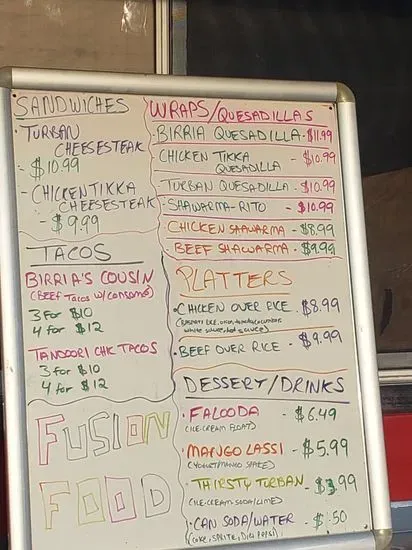 SANDWICHES
TURBAN
CHEESESTEAK
- $10.99
- CHICKEN TIKKA
CHEESESTEAK
- $9.99
TACOS
BIRRIA'S COUSIN
(BEEF TACOS W/CONSOME)
3 for $10
4 for $12
TANDOORI CHK TACOS
3 for $10
4 for $12
FUSION
FOOD
WRAPS/QUESADILLAS
BIRRIA QUESADILLA - $11.99
CHICKEN TIKKA
QUESADILLA - $10.99
TURBAN QUESADILLA - $10.99
SHAWARMA-RITO - $10.99
CHICKEN SHAWARMA - $8.99
BEEF SHAWARMA - $9.99
PLATTERS
• CHICKEN OVER RICE - $8.99
white sauce, hot sauce)
• BEEF OVER RICE - $9.99
DESSERT/DRINKS
• FALOODA - $6.49
(ICE-CREAM FLOAT)
• MANGO LASSI - $5.99
(YOGURT/MANGO SHAKE)
• THIRSTY TURBAN - $3.99
(ICE-CREAM-SODA/LIME)
• CAN SODA/WATER -
(COKE, SPRITE, DIET PEPSI)